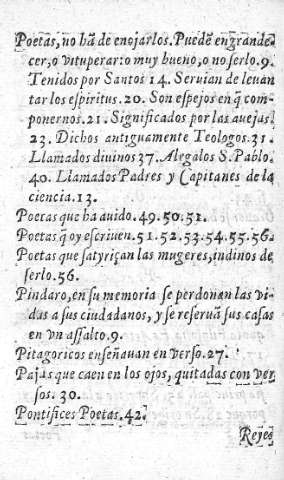 Poetas, no hã de enojarlos. Puedẽ engrande-
cer, o vituperar: o muy bueno, o no serlo. 9.
Tenidos por Santos 14. Seruian de leuan
tar los espiritus. 20. Son espejos en q̃ com-
ponernos. 21. Significados por las auejas.
23. Dichos antiguamente Teologos. 31.
Llamados diuinos 37. Alegalos S. Pablo.
40. Llamados Padres y Capitanes de la
ciencia. 13.
Poetas que ha auido. 49.50.51.
Poetas q̃ oy escriuen. 51.52.53.54.55.56.
Poetas que satyriçan las mugeres, indinos de
serlo. 56.
Pindaro, en su memoria se perdonan las vi-
das a sus ciudadanos, y se reseruã sus casas
en vn assalto. 9.
Pitagoricos enseñauan en verso. 27.
Pajas que caen en los ojos, quitadas con ver
sos. 30.
Pontifices Poetas. 42.
Reyes